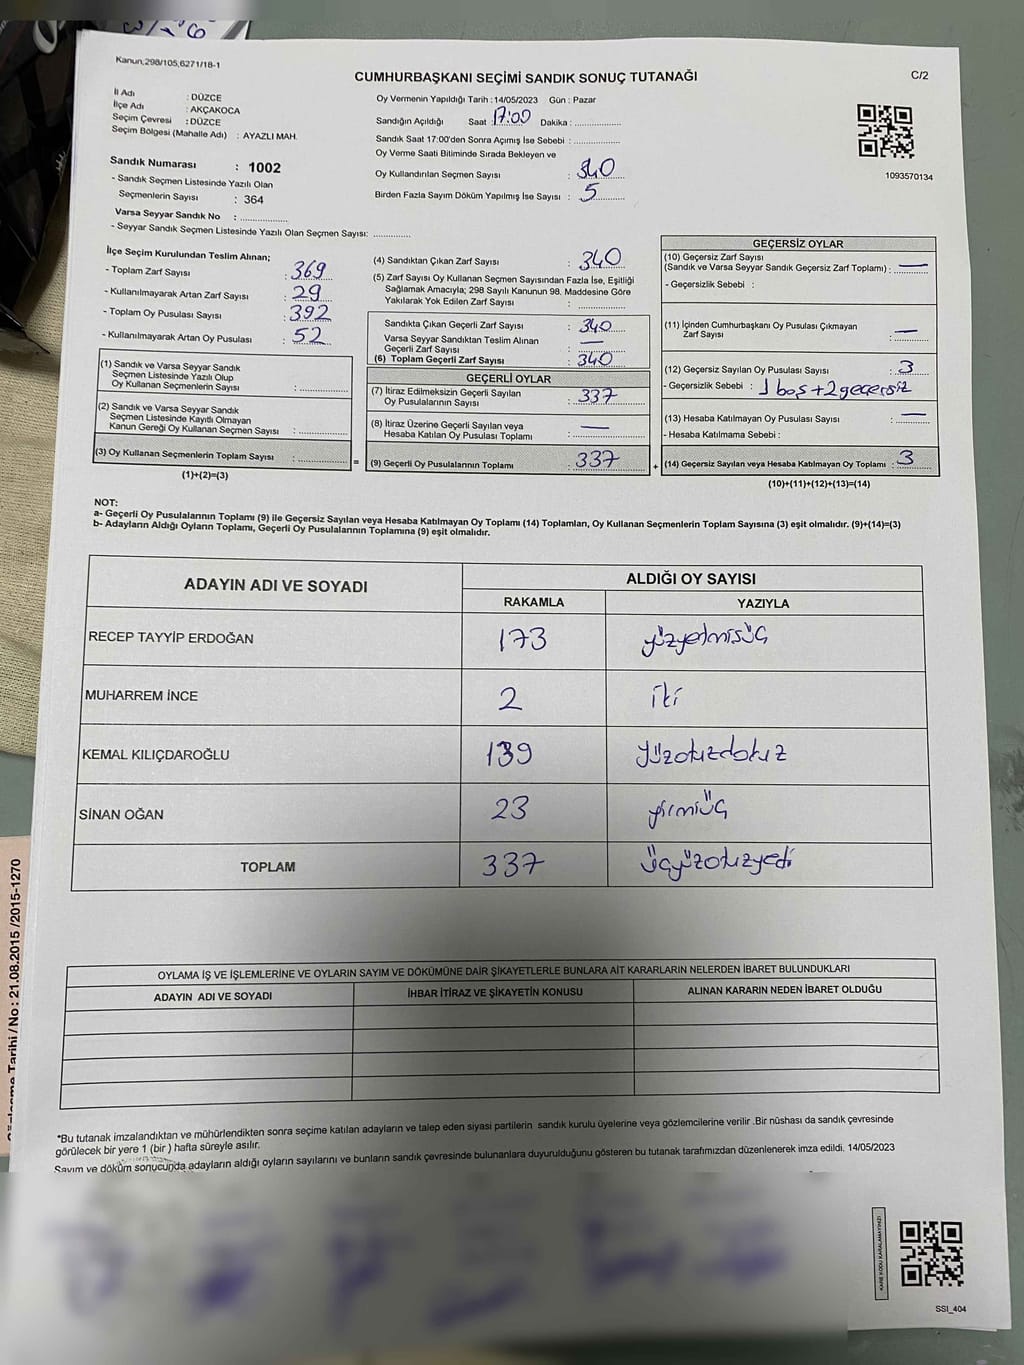 Kanun,298/105,6271/18-1
CUMHURBAŞKANI SEÇİMİ SANDIK SONUÇ TUTANAĞI
C/2
İl Adı : DÜZCE
İlçe Adı : AKÇAKOCA
Seçim Çevresi : DÜZCE
Seçim Bölgesi (Mahalle Adı) : AYAZLI MAH.
Sandık Numarası : 1002
- Sandık Seçmen Listesinde Yazılı Olan
Seçmenlerin Sayısı : 364
Varsa Seyyar Sandık No : ................
- Seyyar Sandık Seçmen Listesinde Yazılı Olan Seçmen Sayısı: .............
Oy Vermenin Yapıldığı Tarih :14/05/2023 Gün : Pazar
Sandığın Açıldığı Saat :17:00 Dakika : ................
Sandık Saat 17:00'den Sonra Açımış İse Sebebi : ................
Oy Verme Saati Bitiminde Sırada Bekleyen ve
Oy Kullandırılan Seçmen Sayısı : 340
Birden Fazla Sayım Döküm Yapılmış İse Sayısı : 5
1093570134
İlçe Seçim Kurulundan Teslim Alınan;
- Toplam Zarf Sayısı : 369
- Kullanılmayarak Artan Zarf Sayısı : 29
- Toplam Oy Pusulası Sayısı : 392
- Kullanılmayarak Artan Oy Pusulası : 52
(1) Sandık ve Varsa Seyyar Sandık
Seçmen Listesinde Yazılı Olup
Oy Kullanan Seçmenlerin Sayısı : ................
(2) Sandık ve Varsa Seyyar Sandık
Seçmen Listesinde Kayıtlı Olmayan
Kanun Gereği Oy Kullanan Seçmen Sayısı : ................
(3) Oy Kullanan Seçmenlerin Toplam Sayısı : ................
(1)+(2)=(3)
(4) Sandıktan Çıkan Zarf Sayısı : 340
(5) Zarf Sayısı Oy Kullanan Seçmen Sayısından Fazla İse, Eşitliği
Sağlamak Amacıyla; 298 Sayılı Kanunun 98. Maddesine Göre
Yakılarak Yok Edilen Zarf Sayısı : ................
Sandıkta Çıkan Geçerli Zarf Sayısı : 340
Varsa Seyyar Sandıktan Teslim Alınan
Geçerli Zarf Sayısı : —
(6) Toplam Geçerli Zarf Sayısı : 340
GEÇERLİ OYLAR
(7) İtiraz Edilmeksizin Geçerli Sayılan
Oy Pusulalarının Sayısı : 337
(8) İtiraz Üzerine Geçerli Sayılan veya
Hesaba Katılan Oy Pusulası Toplamı : —
= (9) Geçerli Oy Pusulalarının Toplamı : 337 +
GEÇERSİZ OYLAR
(10) Geçersiz Zarf Sayısı
(Sandık ve Varsa Seyyar Sandık Geçersiz Zarf Toplamı) : —
- Geçersizlik Sebebi :
(11) İçinden Cumhurbaşkanı Oy Pusulası Çıkmayan
Zarf Sayısı : —
(12) Geçersiz Sayılan Oy Pusulası Sayısı : 3
- Geçersizlik Sebebi : 1 boş + 2 geçersiz
(13) Hesaba Katılmayan Oy Pusulası Sayısı : —
- Hesaba Katılmama Sebebi :
(14) Geçersiz Sayılan veya Hesaba Katılmayan Oy Toplamı : 3
(10)+(11)+(12)+(13)=(14)
NOT:
a- Geçerli Oy Pusulasının Toplamı (9) ile Geçersiz Sayılan veya Hesaba Katılmayan Oy Toplamı (14) Toplamları, Oy Kullanan Seçmenlerin Toplam Sayısına (3) eşit olmalıdır. (9)+(14)=(3)
b- Adayların Aldığı Oyların Toplamı, Geçerli Oy Pusulalarının Toplamına (9) eşit olmalıdır.
ADAYIN ADI VE SOYADI
ALDIĞI OY SAYISI
RAKAMLA YAZIYLA
RECEP TAYYİP ERDOĞAN 173 yüzyetmişüç
MUHARREM İNCE 2 iki
KEMAL KILIÇDAROĞLU 139 yüzotuzdokuz
SİNAN OĞAN 23 yirmiüç
TOPLAM 337 üçyüzotuzyedi
OYLAMA İŞ VE İŞLEMLERİNE VE OYLARIN SAYIM VE DÖKÜMÜNE DAİR ŞİKAYETLERLE BUNLARA AİT KARARLARIN NELERDEN İBARET BULUNDUKLARI
ADAYIN ADI VE SOYADI İHBAR İTİRAZ VE ŞİKAYETİN KONUSU ALINAN KARARIN NEDEN İBARET OLDUĞU
*Bu tutanak imzalandıktan ve mühürlendikten sonra seçime katılan adayların ve talep eden siyasi partilerin sandık kurulu üyelerine veya gözlemcilerine verilir .Bir nüshası da sandık çevresinde
görülecek bir yere 1 (bir ) hafta süreyle asılır.
Sayım ve döküm sonucunda adayların aldığı oyların sayılarını ve bunların sandık çevresinde bulunanlara duyurulduğunu gösteren bu tutanak tarafımızdan düzenlenerek imza edildi. 14/05/2023
KARE KODU KARALAMAYINIZ!
SSI_404
Sözleşme Tarihi / No : 21.08.2015 /2015-1270